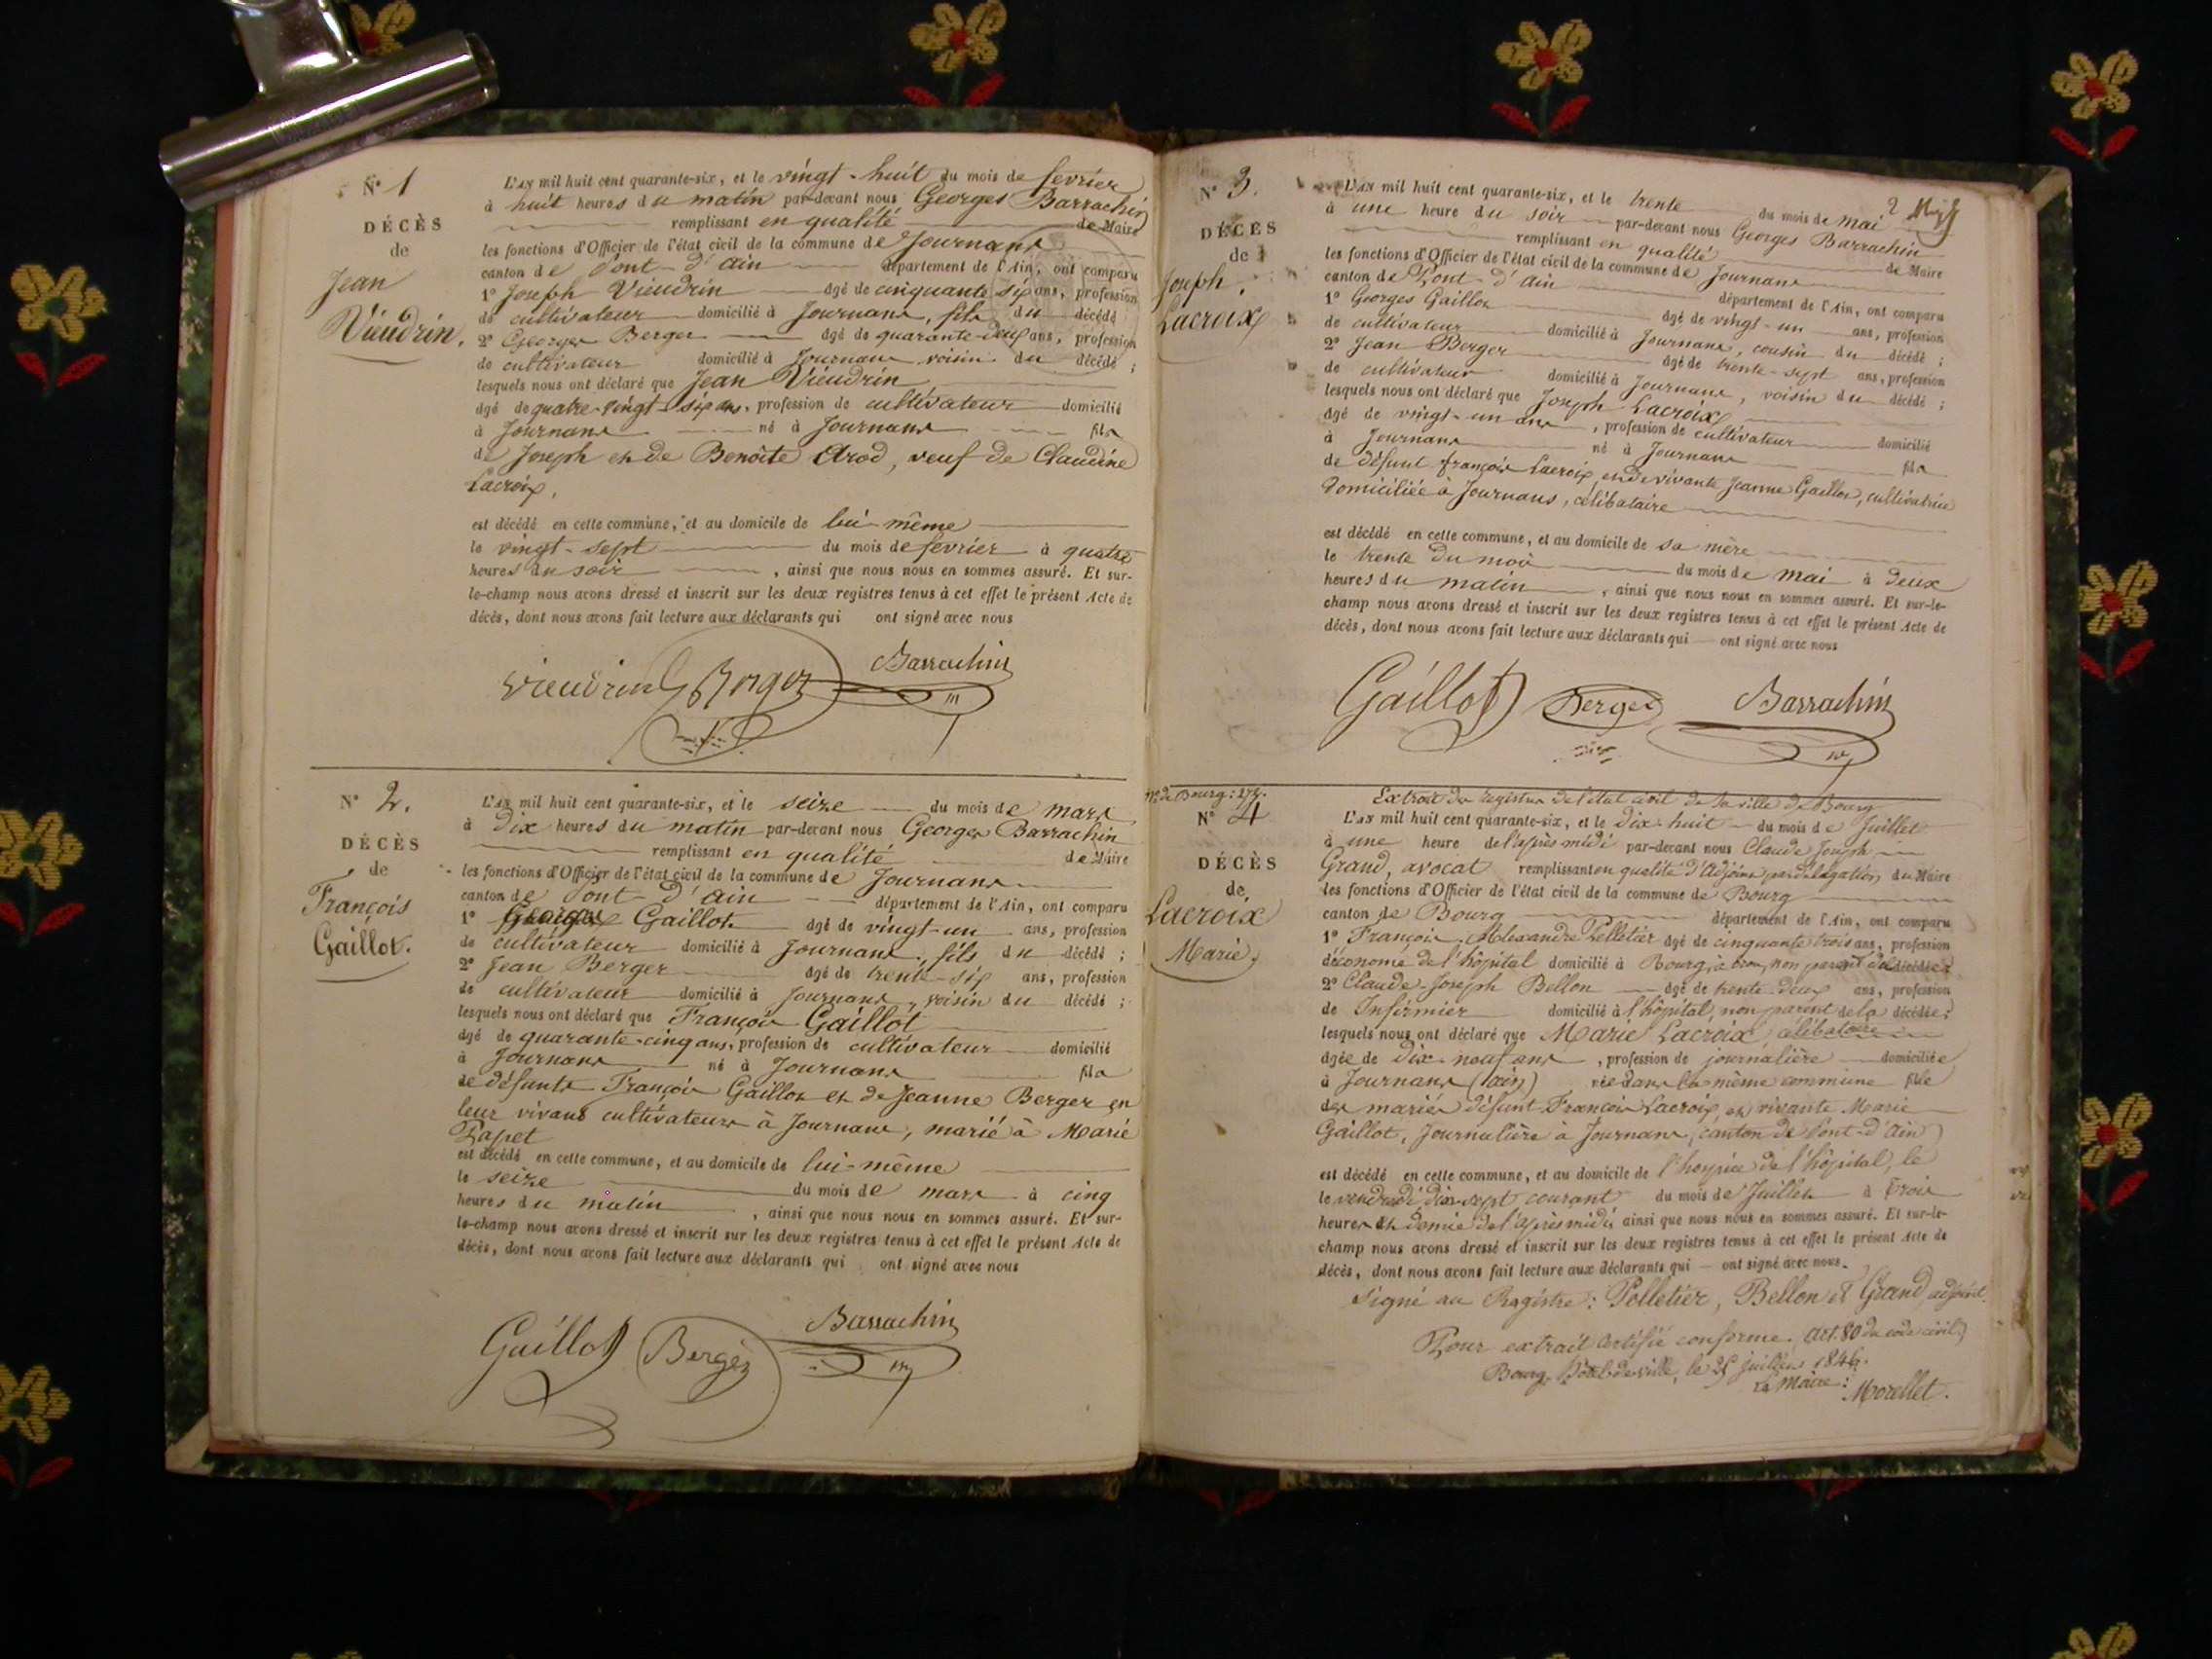 N° 1
DÉCÈS
de
Jean
Vieudrin.
L'AN mil huit cent quarante-six, et le vingt-huit du mois de fevrier
à huit heures du matin par-devant nous Georges Barrachin
remplissant en qualité de Maire
les fonctions d'Officier de l'état civil de la commune de Journans
canton de Pont-d'ain département de l'Ain, ont comparu
1° Joseph Vieudrin âgé de cinquante six ans, profession
de cultivateur domicilié à Journans, fils du décédé
2° Georges Berger âgé de quarante-deux ans, profession
de cultivateur domicilié à Journans voisin du décédé ;
lesquels nous ont déclaré que Jean Vieudrin
âgé de quatre-vingt-six ans, profession de cultivateur domicilié
à Journans né à Journans fils
de Joseph et de Benoite Arod, veuf de Claudine
Lacroix,
est décédé en cette commune, et au domicile de lui-même
le vingt-sept du mois de fevrier à quatre
heures du soir , ainsi que nous nous en sommes assuré. Et sur-
le-champ nous avons dressé et inscrit sur les deux registres tenus à cet effet le présent Acte de
décès, dont nous avons fait lecture aux déclarants qui ont signé avec nous
Vieudrin G Berger Barrachin
N° 2.
DÉCÈS
de
François
Gaillot.
L'AN mil huit cent quarante-six, et le seize du mois de mars
à dix heures du matin par-devant nous Georges Barrachin
remplissant en qualité de Maire
les fonctions d'Officier de l'état civil de la commune de Journans
canton de Pont-d'ain département de l'Ain, ont comparu
1° Georges Gaillot âgé de vingt-un ans, profession
de cultivateur domicilié à Journans, fils du décédé ;
2° Jean Berger âgé de trente-six ans, profession
de cultivateur domicilié à Journans, voisin du décédé ;
lesquels nous ont déclaré que François Gaillot
âgé de quarante-cinq ans, profession de cultivateur domicilié
à Journans né à Journans fils
de défunts François Gaillot et de Jeanne Berger en
leur vivans cultivateurs à Journans, marié à Marie
Papet
est décédé en cette commune, et au domicile de lui-même
le seize du mois de mars à cinq
heures du matin , ainsi que nous nous en sommes assuré. Et sur-
le-champ nous avons dressé et inscrit sur les deux registres tenus à cet effet le présent Acte de
décès, dont nous avons fait lecture aux déclarants qui ont signé avec nous
Gaillot Berger Barrachin
N° 3.
DÉCÈS
de
Joseph
Lacroix
2
L'AN mil huit cent quarante-six, et le trente du mois de mai
à une heure du soir par-devant nous Georges Barrachin
remplissant en qualité de Maire
les fonctions d'Officier de l'état civil de la commune de Journans
canton de Pont-d'ain département de l'Ain, ont comparu
1° Georges Gaillot âgé de vingt-un ans, profession
de cultivateur domicilié à Journans, cousin du décédé ;
2° Jean Berger âgé de trente-sept ans, profession
de cultivateur domicilié à Journans, voisin du décédé ;
lesquels nous ont déclaré que Joseph Lacroix
âgé de vingt-un ans , profession de cultivateur domicilié
à Journans né à Journans fils
de défunt françois Lacroix, et de vivante Jeanne Gaillot, cultivatrice
domiciliée à Journans, célibataire
est décédé en cette commune, et au domicile de sa mère
le trente du mois du mois de mai à deux
heures du matin , ainsi que nous nous en sommes assuré. Et sur-le-
champ nous avons dressé et inscrit sur les deux registres tenus à cet effet le présent Acte de
décès, dont nous avons fait lecture aux déclarants qui ont signé avec nous
Gaillot Berger Barrachin
N° de Bourg: 273.
N° 4
DÉCÈS
de
Lacroix
Marie.
Extrait du registre de l'état civil de la ville de Bourg
L'AN mil huit cent quarante-six, et le dix-huit du mois de Juillet
à une heure de l'après midi par-devant nous Claude Joseph
Grand, avocat remplissant en qualité d'Adjoint, par délégation, du Maire
les fonctions d'Officier de l'état civil de la commune de Bourg
canton de Bourg département de l'Ain, ont comparu
1° François Alexandre Pelletier âgé de cinquante trois ans, profession
d'économe de l'hôpital domicilié à Bourg, non parent de la décédée
2° Claude-Joseph Bellon âgé de trente-deux ans, profession
de Infirmier domicilié à l'hôpital, non parent de la décédée ;
lesquels nous ont déclaré que Marie Lacroix célibataire
âgée de dix-neuf ans , profession de journalière domiciliée
à Journans (ain) née dans la même commune fille
des mariés défunt François Lacroix, et vivante Marie
Gaillot, Journalière à Journans, (canton de Pont-d'Ain)
est décédé en cette commune, et au domicile de l'hospice de l'hôpital, le
le vendredi dix-sept courant du mois de Juillet à trois
heures et demie de l'après midi, ainsi que nous nous en sommes assuré. Et sur-le-
champ nous avons dressé et inscrit sur les deux registres tenus à cet effet le présent Acte de
décès, dont nous avons fait lecture aux déclarants qui ont signé avec nous.
Signé au Registre: Pelletier, Bellon et Grand, adjoint.
Pour extrait certifié conforme. (art. 80 du code civil)
Bourg, hôtel de ville, le 25 juillet 1846.
Le Maire: Morellet.